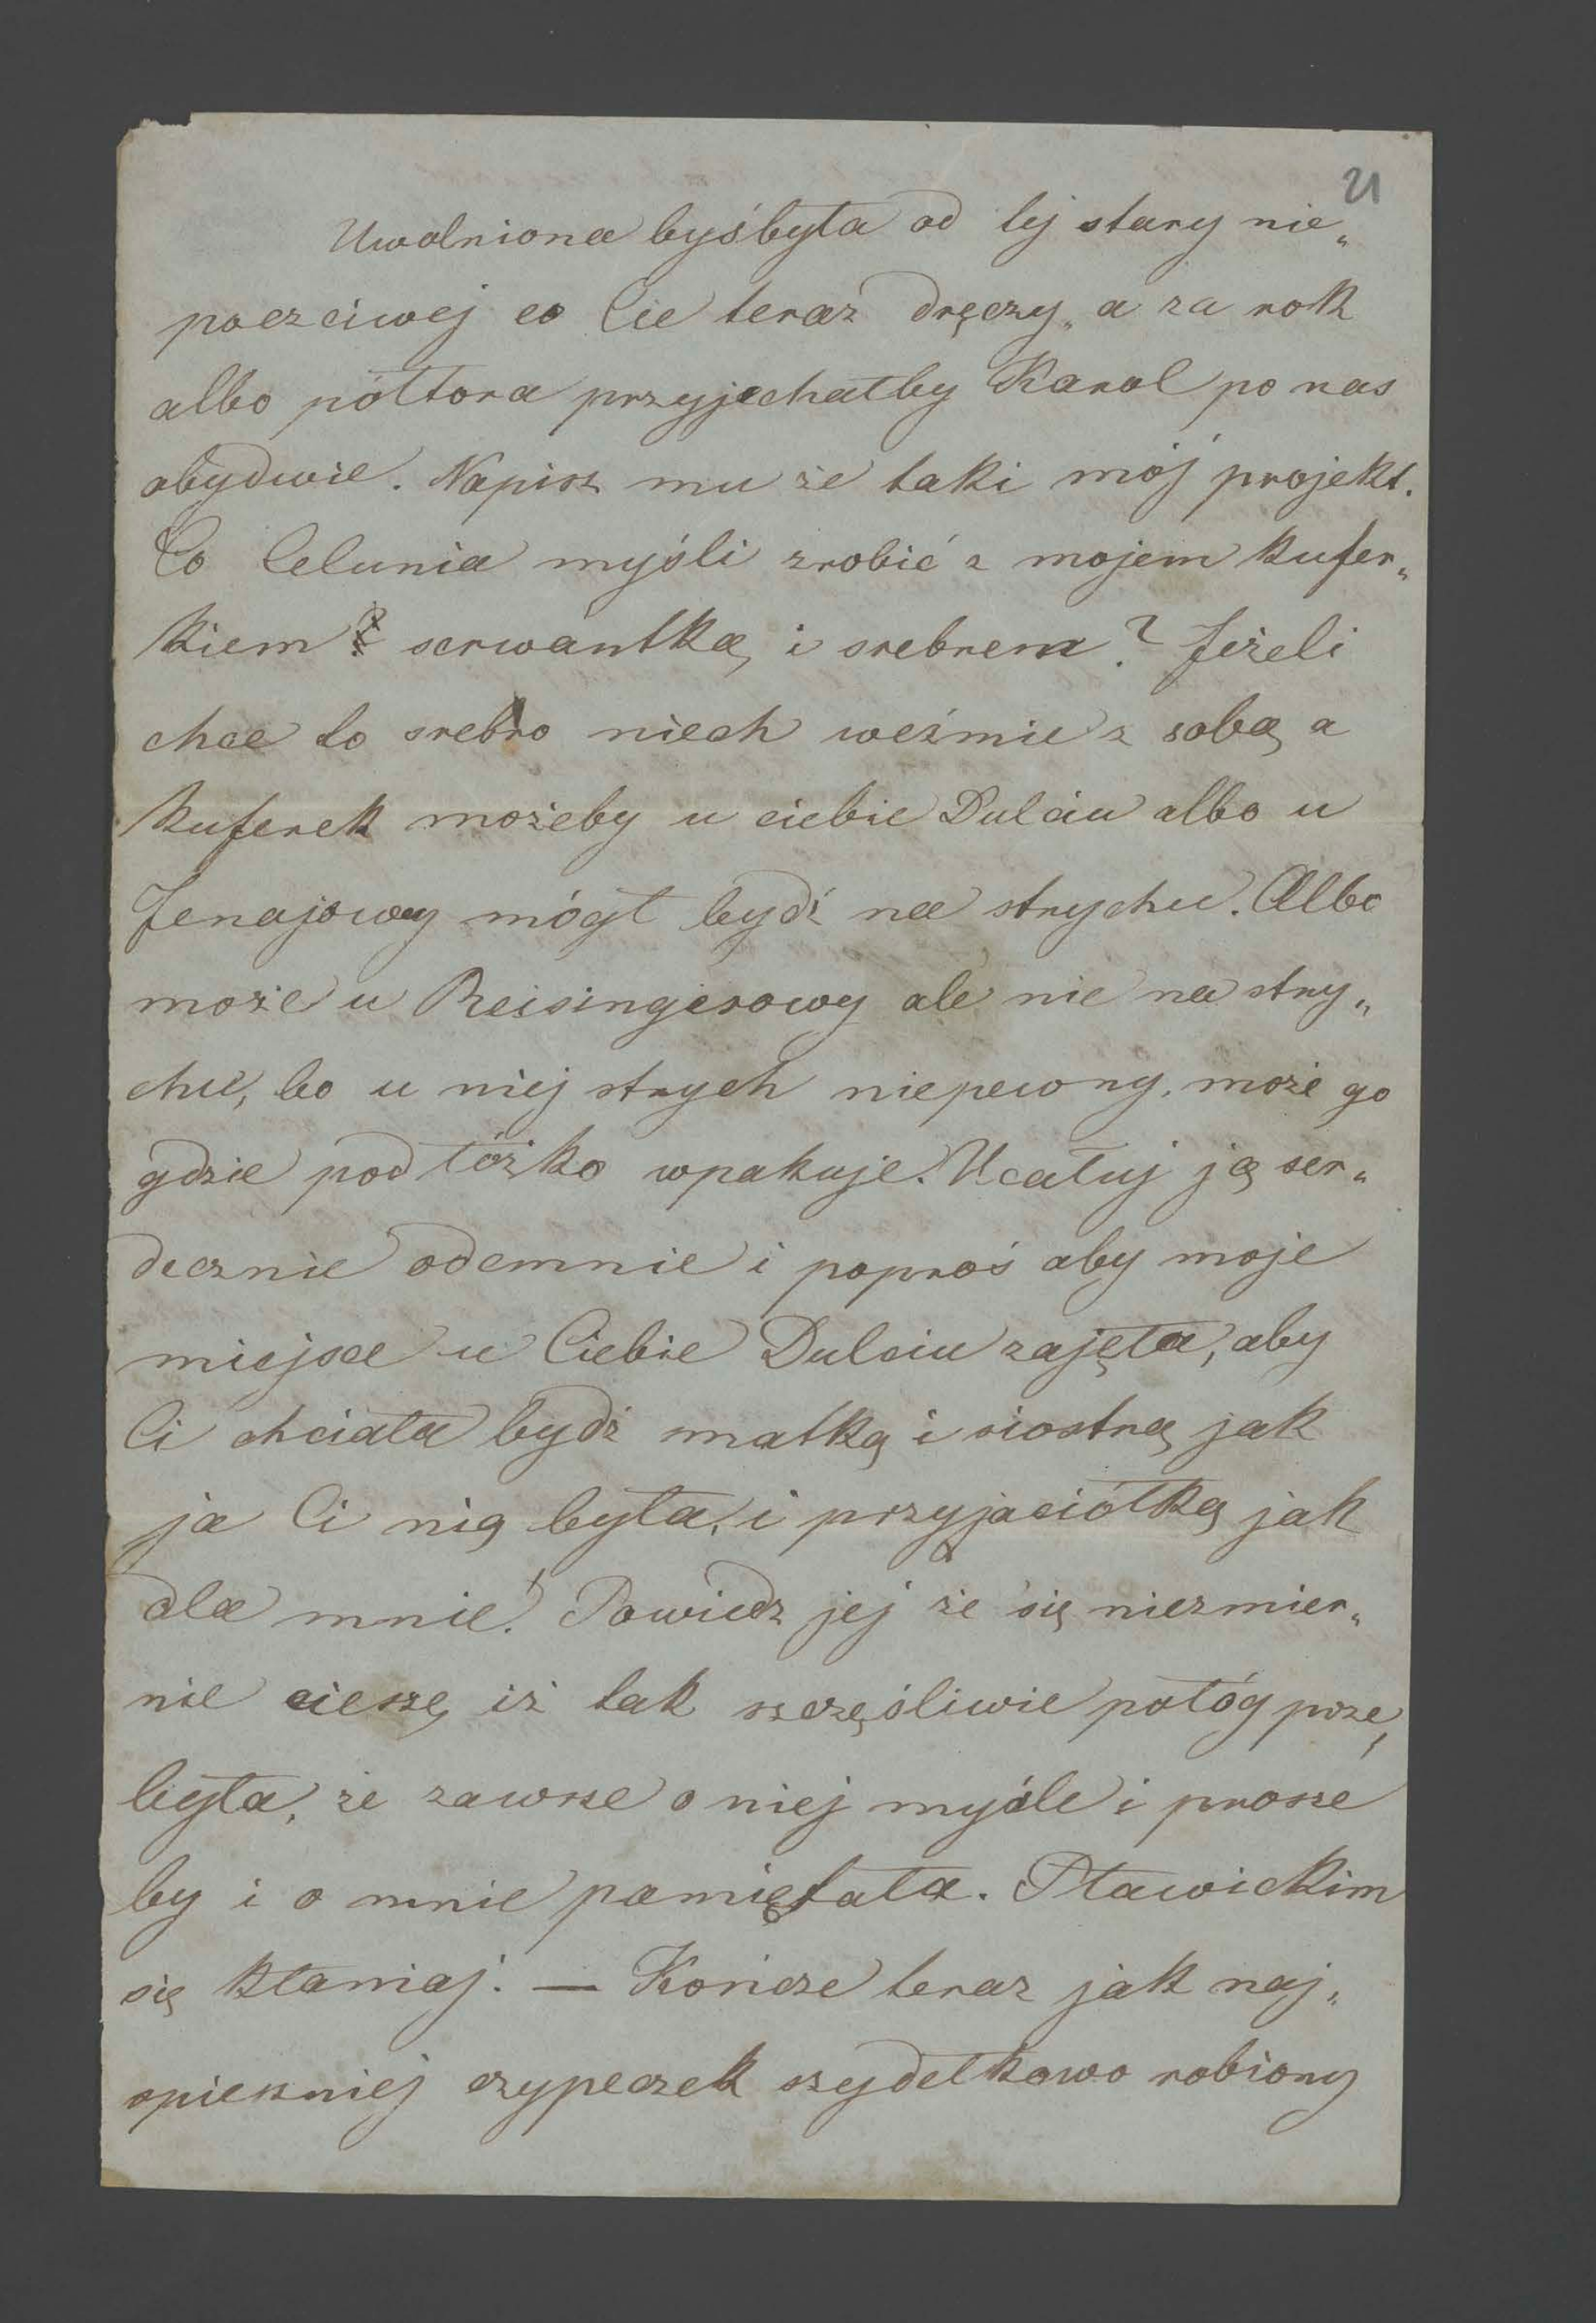 21
Uwolniona byśbyła od tej stary nie„
poczciwej co Cie teraz dręczy„ a za rok
albo półtora przyjechałby Karol po nas
obydwie. Napisz mu że taki mój projekt.
Co Celunia myśli zrobić z mojem kufer„
kiem z serwantką i srebrem? Jeżeli
chce to srebro niech weźmie z sobą a
kuferek możeby u ciebie Dulciu albo u
Jenajowey mógł bydź na strychu. Albo
może u Reisingerowy ale nie na stry„
chu, bo u niej strych niepewny, może go
gdzie pod łóżko wpakuje. Ucałuj ją ser„
decznie odemnie i poproś aby moje
miejsce u Ciebie Dulciu zajęła, aby
Ci chciała bydź matką i siostrą jak
ja Ci nią była, i przyjaciółką jak
dla mnie! Powiedz jej że się niezmier„
nie cieszę iż tak szczęśliwie połóg prze„
była, że zawsze o niej myśle i prosze
by i o mnie pamiętała. Pławickim
się kłaniaj. — Kończe teraz jak naj„
spieszniej czypeczek szydełkowo robiony